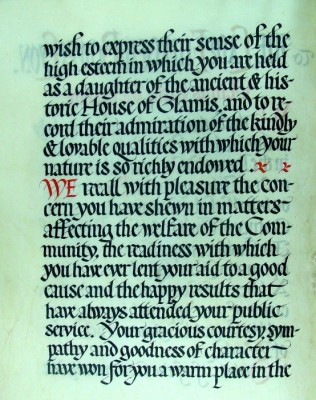 wish to express their sense of the
high esteem in which you are held
as a daughter of the ancient & his-
toric House of Glamis, and to re-
cord their admiration of the kindly
& lovable qualities with which your
nature is so richly endowed.
WE recall with pleasure the con-
cern you have shewn in matters
affecting the welfare of the Com-
munity, the readiness with which
you have ever lent your aid to a good
cause and the happy results that
have always attended your public
service. Your gracious courtesy, sym-
pathy and goodness of character
have won for you a warm place in the